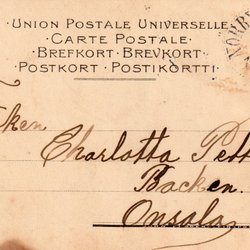 UNION POSTALE UNIVERSELLE
CARTE POSTALE
BREFKORT · BREVKORT
POSTKORT · POSTIKORTTI
Charlotta
Backen.
Onsala